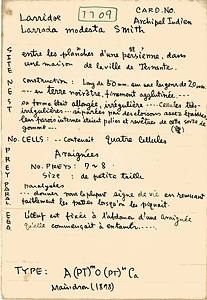 1709
CARD.NO.
Larridae
Archipel Indien
Larrada modesta Smith
SITE NEST
entre les planches d'une persienne, dans
une maison de la ville de Ternate.
Construction: Long de 50 mm. sur une largeur de 20 mm
--- en terre noirâtre, finement agglutinée ---
sa forme était allongée, irrégulière --- Cellules très-
irrégulières --- séparées par des cloisons assez épaisses
leur parois internes étaient polies et revêtues de cette sorte de
gomme ---
No. CELLS: --- Contenait Quatre Cellules
PREY
Araignées
No. PREYS: 7 ~ 8
Size: de petite taille
PARAL
paralysées
--- donner quelque signe de vie en remuant
faiblement les pattes lorsqu'on les piquait.
EGG
L'œuf est fixé à l'abdomen d'une araignée
qu'elle commençait à entamer ---
TYPE: A (PT) O (PT) Ca
Maindron (1878)